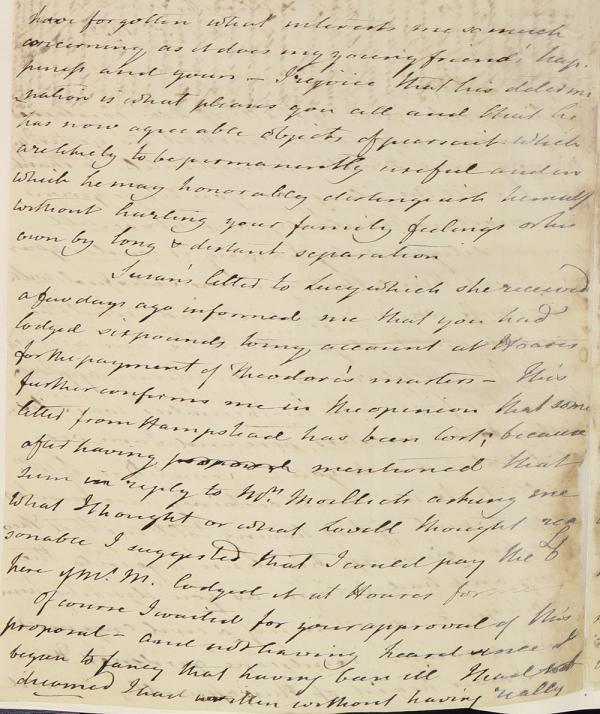 have forgotten what interests me so much
concerning, as it does my young friend's hap-
piness and yours – I rejoice that his determi
nation is what pleases you all and that he
has now agreeable objects of pursuit which
are likely to be permanently useful and in
which he may honorably distinguish himself
without hurting your family feelings or his
own by long & distant separation
Susan's letter to Lucy which she received
a few days ago informed me that you had
lodged six pounds to my account at Hoares
for the payment of Theodore's masters – This
further confirms me in the opinion that some
letter from Hampstead has been lost, because
after having mentioned that
sum in reply to Mrs. Moilliet asking me
what I thought or what Lovell thought rea
sonable I suggested that I could pay the £
here if Mr. M. lodged it at Hoares for
Of course I waited for your approval of this
proposal – and not having heard since I
began to fancy that having been ill I had
dreamed I had written without having really